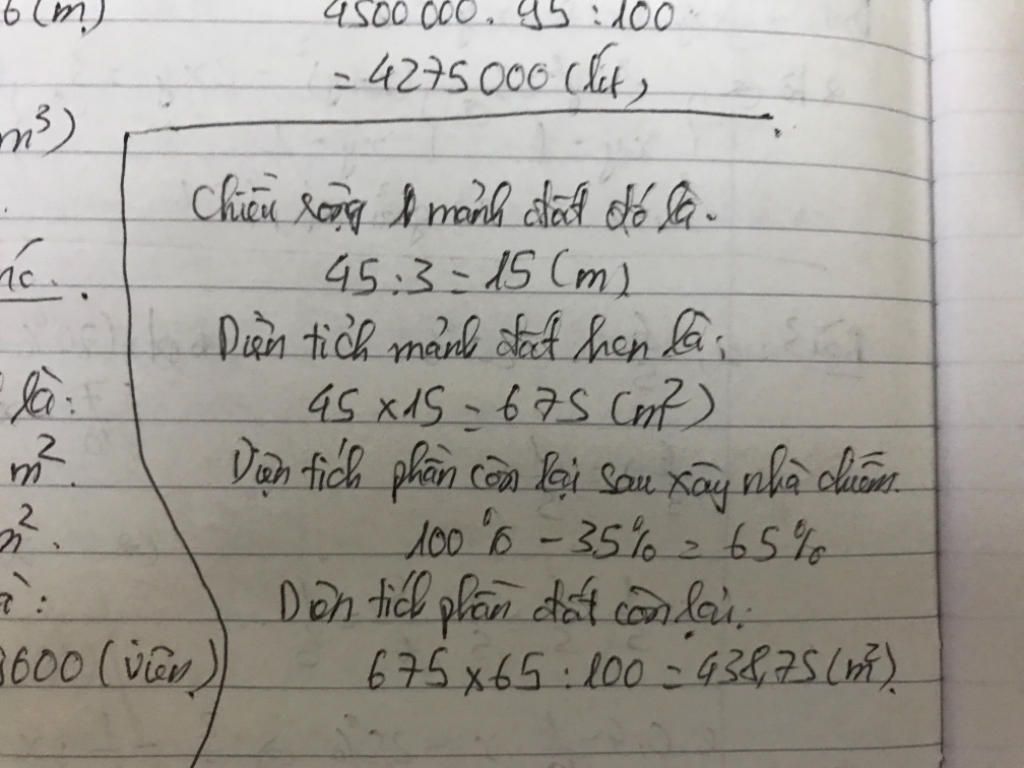 6 (m)
m³)
là:
m².
m².
3600 (viên)
4500 000. 95 : 100
= 4275000 (lít)
Chiều rộng mảnh đất đó là.
45 : 3 = 15 (m)
Diện tích mảnh đất hcn là:
45 x 15 = 675 (m²)
Diện tích phần còn lại sau xây nhà chiếm.
100% - 35% = 65%
Diện tích phần đất còn lại:
675 x 65 : 100 = 438,75 (m²).